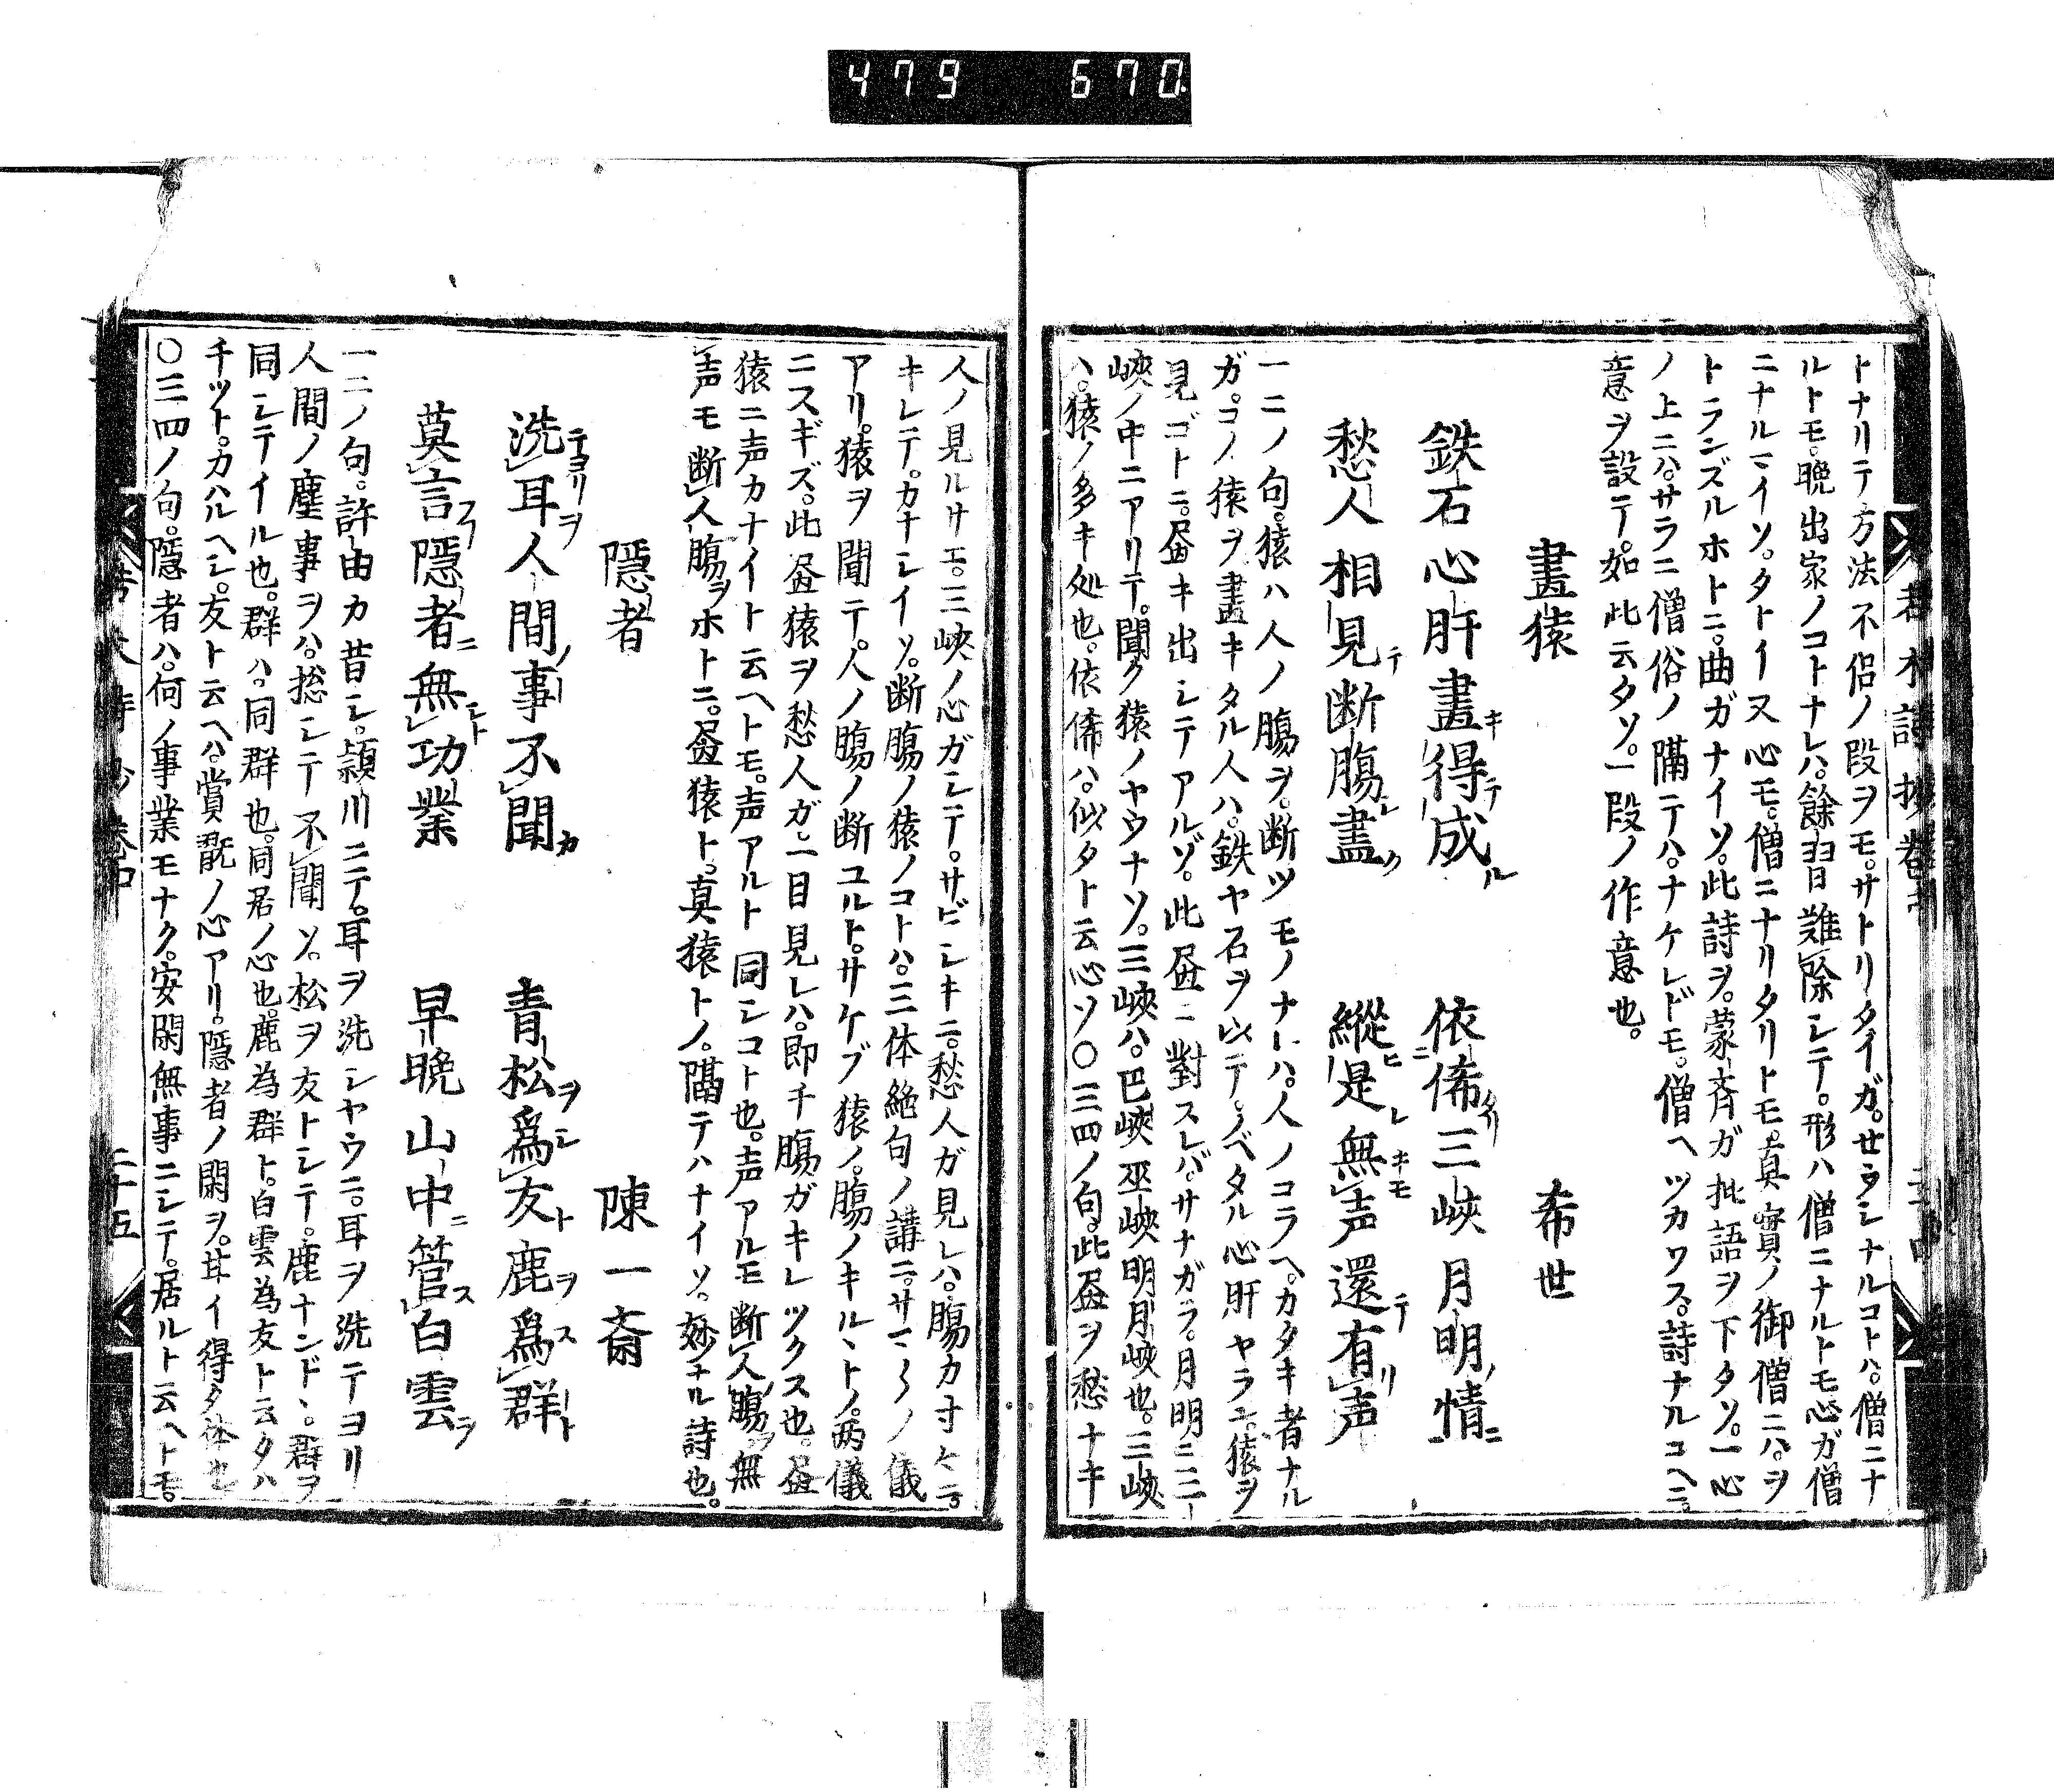 479 670
トナリテ方法不侶ノ段ヲモ。サトリタイガ。セウシナルコトハ。僧ニナ
ルトモ。晩出家ノコトナレハ。餘習難除シテ。形ハ僧ニナルトモ心ガ僧
ニナルマイソ。タトイ又心モ。僧ニナリタリトモ。真實ノ御僧ニハ。ヲ
トランズルホトニ。曲ガナイソ。此詩ヲ。蒙斉ガ批語ヲ下タソ。一心
ノ上ニハ。サラニ僧俗ノ隔テハ。ナケレドモ。僧ヘツカワス。詩ナルコヘニ。
意ヲ設テ。如此云タソ。一段ノ作意也。
畫猿 希世
鉄石心肝畫キ得テ成ル 依俙タリ三峽月明ノ情
愁人相見テ断膓盡ク 縦ヒ是レ無キモ声還テ有リ声
一二ノ句。猿ハ人ノ膓ヲ。断ツモノナレハ。人ノコラヘ。カタキ者ナル
ガ。コノ猿ヲ畫キタル人ハ。鉄ヤ石ヲ以テ。ノベタル心肝ヤラニ。猿ヲ
見ゴトニ。畫キ出シテアルゾ。此畫ニ對スレバ。サナガラ。月明ニ三
峽ノ中ニアリテ。聞ク猿ノヤウナソ。三峽ハ。巴峽巫峽明月峽也。三峽
ハ。猿ノ多キ処也。依俙ハ。似タト云心ソ〇三四ノ句。此畫ヲ愁ナキ
人ノ見ルサモ。三峽ノ心ガシテ。サビシキニ。愁人ガ見レハ。膓カ寸々ニ
キレテ。カナシイソ。断膓ノ猿ノコトハ。三体絶句ノ講ニ。サマ〱ノ儀
アリ。猿ヲ聞テ。人ノ膓ノ断ユルト。サケブ猿ノ。膓ノキルヽトノ。両儀
ニスギズ。此畫猿ヲ愁人ガ一目見レハ。即チ膓ガキレツクス也。畫
猿ニ声カナイト云ヘトモ。声アルト同シコト也。声アルモ断人膓ヲ無
声モ断人膓ヲホトニ。畫猿ト。真猿トノ。隔テハナイソ。妙ナル詩也。
隠者 陳一斎
洗テヨリ耳ヲ人間ノ事不聞カ 青松ヲ為シ友ト鹿ヲ為ス群ト
莫言フ隠者ニ無シト功業 早晩山中ニ管ス白雲ヲ
一二ノ句。許由カ昔シ。潁川ニテ。耳ヲ洗シヤウニ。耳ヲ洗テヨリ
人間ノ塵事ヲハ。捴シテ不聞ソ。松ヲ友トシテ。鹿ナンドヽ。群ヲ
同シテイル也。群ハ。同群也。同居ノ心也。鹿為群ト。白雲為友ト云タハ
チツト。カハルヘシ。友ト云ヘハ。賞翫ノ心アリ。隠者ノ閑ヲ。甘イ得タ体也
〇三四ノ句。隠者ハ。何ノ事業モナク。安閑無事ニシテ。居ルト云ヘトモ。
二十五